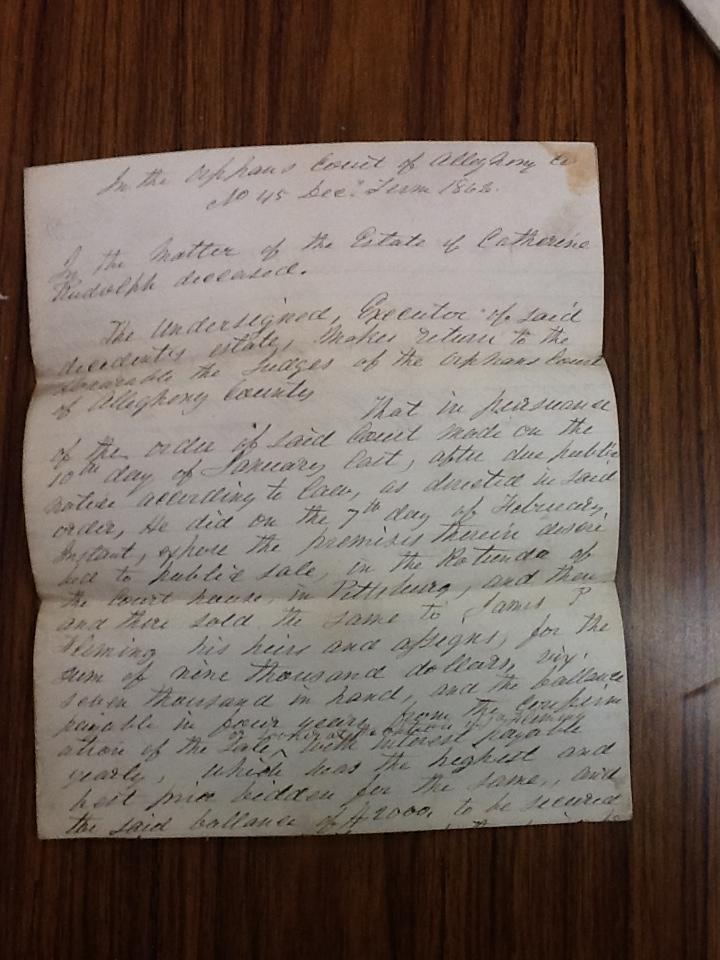 In the Orphans Court of Allegheny Co
No 45 Dec. Term 1862.
In the Matter of the Estate of Catherine
Rudolph deceased.
The Undersigned, Executor of said
decedents, estate, Makes return to the
Honorable the Judges of the Orphans Court
of Allegheny County
That in persuance
of the order of said Court made on the
10th day of January last, after due public
notice according to law, as directed in said
order, He did on the 7th day of February,
Instant, expose the premises therein descri
bed to public sale, in the Rotunda of
the Court house, in Pittsburg, and then
and there sold the same to James P
Fleming his heirs and assigns, for the
sum of nine thousand dollars, viz.
seven thousand in hand, and the ballance
payable in four years from the Confirm
ation of the Sale, with interest payable
yearly, which was the highest and
best price bidden for the same, and
the said ballance of $2000. to be secured